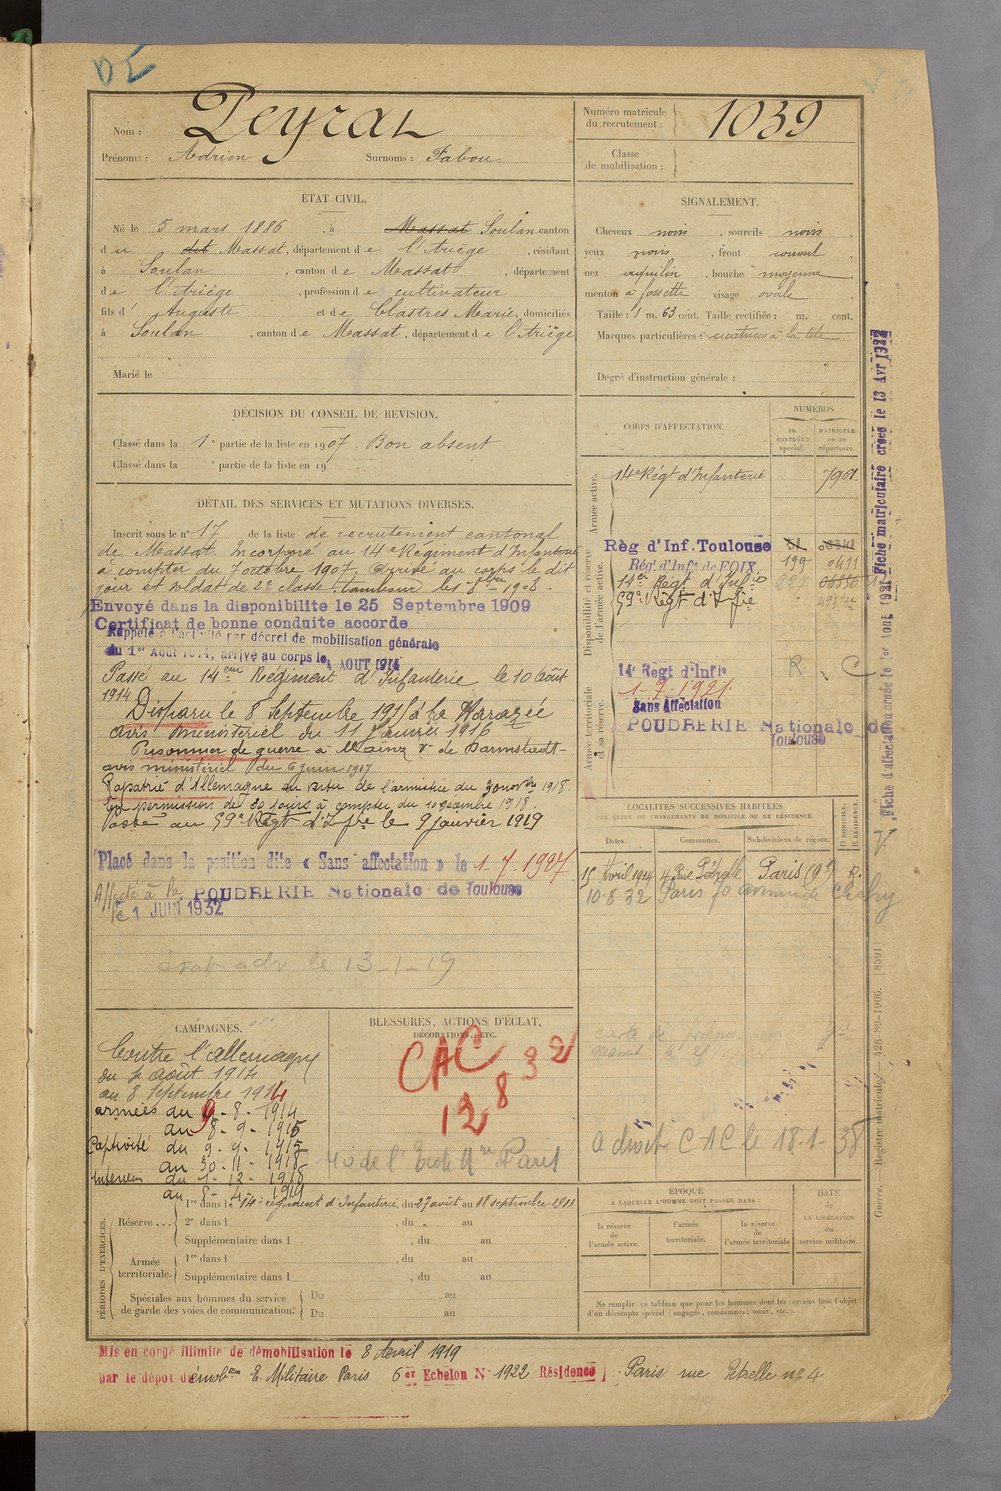 DE
Nom : Peyrat
Prénoms : Adrien Surnoms : Fabou
Numéro matricule du recrutement : 1039
Classe de mobilisation :
ÉTAT CIVIL.
Né le 5 mars 1886, à Massat Soulan canton
du dit Massat, département de l'Ariège, résidant
à Soulan, canton de Massat, département
de l'Ariège, profession de cultivateur
fils d'Auguste et de Clastres Marie, domiciliés
à Soulan, canton de Massat, département de l'Ariège
Marié le
SIGNALEMENT.
Cheveux noirs, sourcils noirs
yeux noirs, front couvert
nez aquilin, bouche moyenne
menton à fossette visage ovale
Taille : 1 m. 63 cent. Taille rectifiée : m. cent.
Marques particulières : cicatrices à la tête
Degré d'instruction générale :
DÉCISION DU CONSEIL DE REVISION.
Classé dans la 1e partie de la liste en 1907. Bon absent
Classé dans la e partie de la liste en 19
DÉTAIL DES SERVICES ET MUTATIONS DIVERSES.
Inscrit sous le n° 17 de la liste de recrutement cantonal
de Massat. Incorporé au 14e Régiment d'Infanterie
à compter du 7 octobre 1907. Arrivé au corps le dit
jour et soldat de 2e classe. tambour le 8 1908.
Envoyé dans la disponibilite le 25 Septembre 1909
Certificat de bonne conduite accorde
Rappelé à l'activité par décret de mobilisation générale
du 1er Août 1914, arrivé au corps le 4 AOUT 1914
Passé au 14eme Régiment d'Infanterie le 10 Août
1914 Disparu le 8 Septembre 1915 à La Harazée
avis ministériel du 11 Janvier 1916
Prisonnier de guerre à Mainz de Darmstadt
avis ministériel du 6 juin 1917
Rapatrié d'Allemagne en vertu de l'armistice du 30 novbre 1918.
En permission de 30 jours à compter du 10 décembre 1918.
Passé au 59e Régt d'Infie le 9 janvier 1919
Placé dans la position dite « Sans affectation » le 1-7-1927
Affecté à la POUDRERIE Nationale de Toulouse
le 1 JUIN 1932
le 13-1-19
CORPS D'AFFECTATION.
NUMÉROS
AU CONTRÔLE spécial.
MATRICULE OU AU répertoire.
Armée active.
14e Régt d'Infanterie 7961
Disponibilité et réserve de l'armée active.
Règ d'Inf. Toulouse
Rég. d'Infie de FOIX. 199 0411
14e Régt d'Infie
59e Régt d'Infie
Armée territoriale et sa réserve.
14 Règt d'Infie R. C
1-7-1921.
Sans Affectation
POUDRERIE Nationale de
Toulouse
LOCALITÉS SUCCESSIVES HABITÉES
PAR SUITE DE CHANGEMENTS DE DOMICILE OU DE RÉSIDENCE.
Dates. Communes. Subdivisions de région. D DOMICILE. R RÉSIDENCE.
15 Avril 1914 4 Rue Pétrelle Paris (9e) R.
10-8-32 Paris 70 avenue de Clichy
a droit CAC le 18-1-38
CAMPAGNES.
Contre l'allemagne
du 4 août 1914
au 8 septembre 1914
armées du 9-8-1914
au 8-9-1915
Captivité du 9-9-1915
au 30-11-1918
Intérieur du 1-12-1918
au 8-4-1919
BLESSURES, ACTIONS D'ÉCLAT,
DÉCORATIONS, ETC.
CAC
12 8 32
Paris
PÉRIODES D'EXERCICES.
Réserve... 1re dans le 14e régiment d'Infanterie, du 27 août au 18 septembre 1911
2e dans l , du au
Supplémentaire dans l , du au
Armée territoriale. 1re dans l , du au
Supplémentaire dans l , du au
Spéciales aux hommes du service Du au
de garde des voies de communication. Du au
ÉPOQUE
À LAQUELLE L'HOMME DOIT PASSER DANS :
la réserve de l'armée active.
l'armée territoriale.
la réserve de l'armée territoriale
DATE DE LA LIBÉRATION du service militaire.
Ne remplir ce tableau que pour les hommes dont les services font l'objet
d'un décompte spécial (engagés, condamnés, omis, etc.).
Mis en congé illimité de démobilisation le 8 Avril 1919
par le dépôt démobeur E. Militaire Paris 6e Echelon N° 1922 Résidence : Paris rue Pétrelle n° 4
Fiche matriculaire créée le 13 Avr 1922
Fiche d'affectation créée le 1er Août 1921
Guerre. — Registre matricule. — 428-89-1906. [8591]